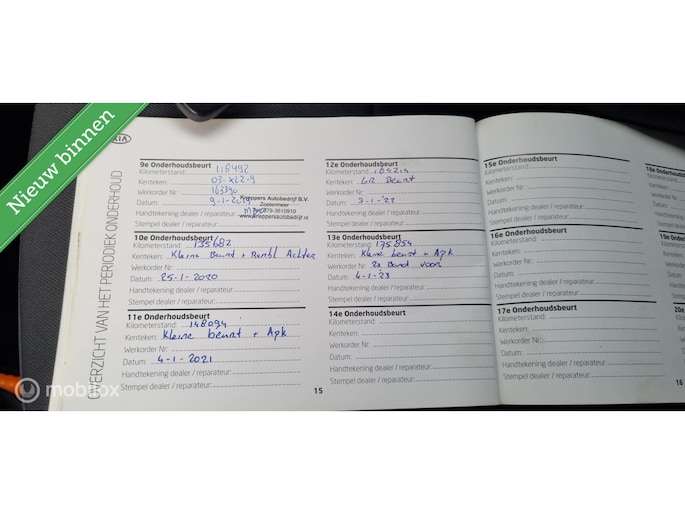 Nieuw binnen
KIA
OVERZICHT VAN HET PERIODIEK ONDERHOUD
9e Onderhoudsbeurt
Kilometerstand: 118492
Kenteken: 03-XLZ-9
Werkorder Nr: 163390
Datum: 9-1-2019
Handtekening dealer / reparateur:
Stempel dealer / reparateur:
Knijpers Autobedrijf B.V.
Zoetermeer
079-3610910
10e Onderhoudsbeurt
Kilometerstand: 135682
Kenteken: Kleine Beurt + Rembl Achter
Werkorder Nr:
Datum: 25-1-2020
Handtekening dealer / reparateur:
Stempel dealer / reparateur:
11e Onderhoudsbeurt
Kilometerstand: 148094
Kenteken: Kleine beurt + Apk
Werkorder Nr:
Datum: 4-1-2021
Handtekening dealer / reparateur:
Stempel dealer / reparateur:
12e Onderhoudsbeurt
Kilometerstand:
Kenteken: GR Beurt
Werkorder Nr:
Datum: 3-1-'22
Handtekening dealer / reparateur:
Stempel dealer / reparateur:
13e Onderhoudsbeurt
Kilometerstand: 175854
Kenteken: Kleine beurt + Apk
Werkorder Nr: 2x Band voor
Datum: 4-1-'23
Handtekening dealer / reparateur:
Stempel dealer / reparateur:
14e Onderhoudsbeurt
Kilometerstand:
Kenteken:
Werkorder Nr:
Datum:
Handtekening dealer / reparateur:
Stempel dealer / reparateur:
15
15e Onderhoudsbeurt
Kilometerstand:
Kenteken:
Werkorder Nr:
Datum:
Handtekening dealer / reparateur:
Stempel dealer / reparateur:
16e Onderhoudsbeurt
Kilometerstand:
Kenteken:
Werkorder Nr:
Datum:
Handtekening dealer / reparateur:
Stempel dealer / reparateur:
17e Onderhoudsbeurt
Kilometerstand:
Kenteken:
Werkorder Nr:
Datum:
Handtekening dealer / reparateur:
Stempel dealer / reparateur:
16
mobilox